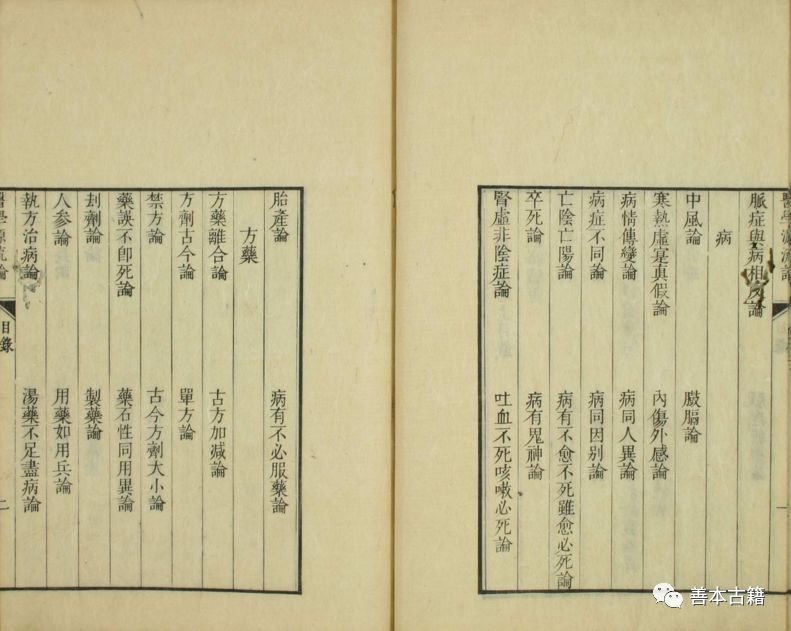 醫學源流論
脈症與病相反論
病
中風論 臌膈論
寒熱虛實真假論 內傷外感論
病情傳變論 病同人異論
病症不同論 病同因别論
亡陰亡陽論 病有不愈不死雖愈必死論
卒死論 病有鬼神論
腎虛非陰症論 吐血不死咳嗽必死論
一
胎產論 病有不必服藥論
方藥
方藥離合論 古方加減論
方劑古今論 單方論
禁方論 古今方劑大小論
藥誤不卽死論 藥石性同用異論
劑論 製藥論
人參論 用藥如用兵論
執方治病論 湯藥不足盡病論
醫學源流論 目錄 二
善本古籍